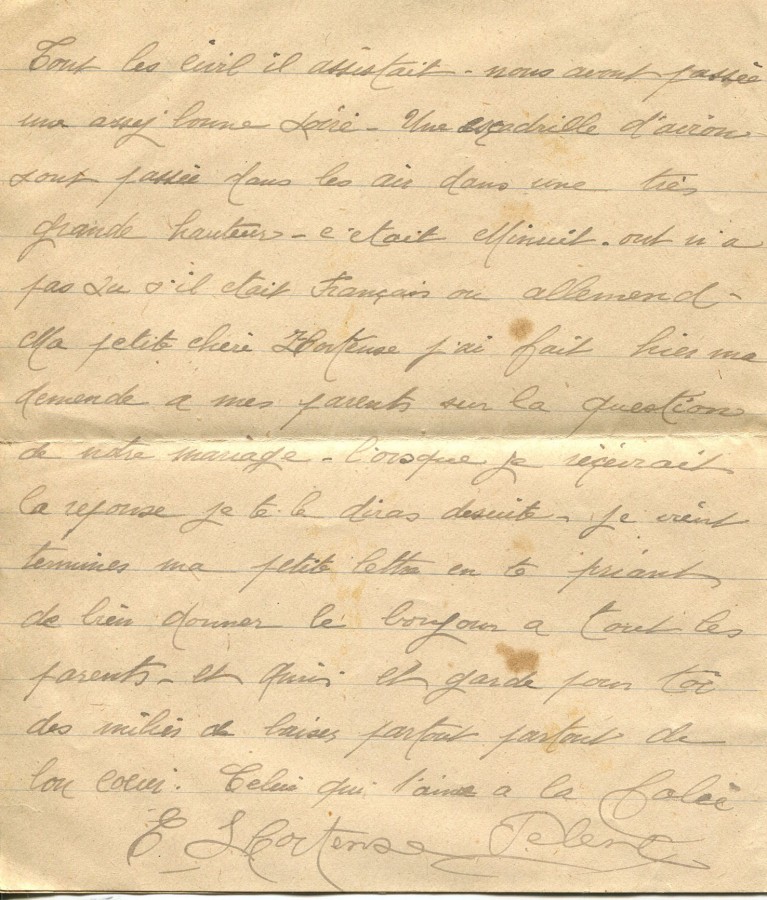 Tout les civil il assistait - nous avont passée
une assez bonne soiré - Une escadrille d'avion
sont passée dans les air dans une très
grande hauteur - c'etait Minuit. ont n'a
pas su s'il etait Français ou allemend -
Ma petite chère Hortense j'ai fait hier ma
demende a mes parents sur la question
de notre mariage - lorsque je reçevrait
la reponse je te le diras desuite - je vient
terminer ma petite lettre en te priant
de bien donner le bonjour a tout les
parents - et et garde pour toi
des milier de baiser partout partout de
bon coeur. Celui qui t'aime a la folie
E Hortense